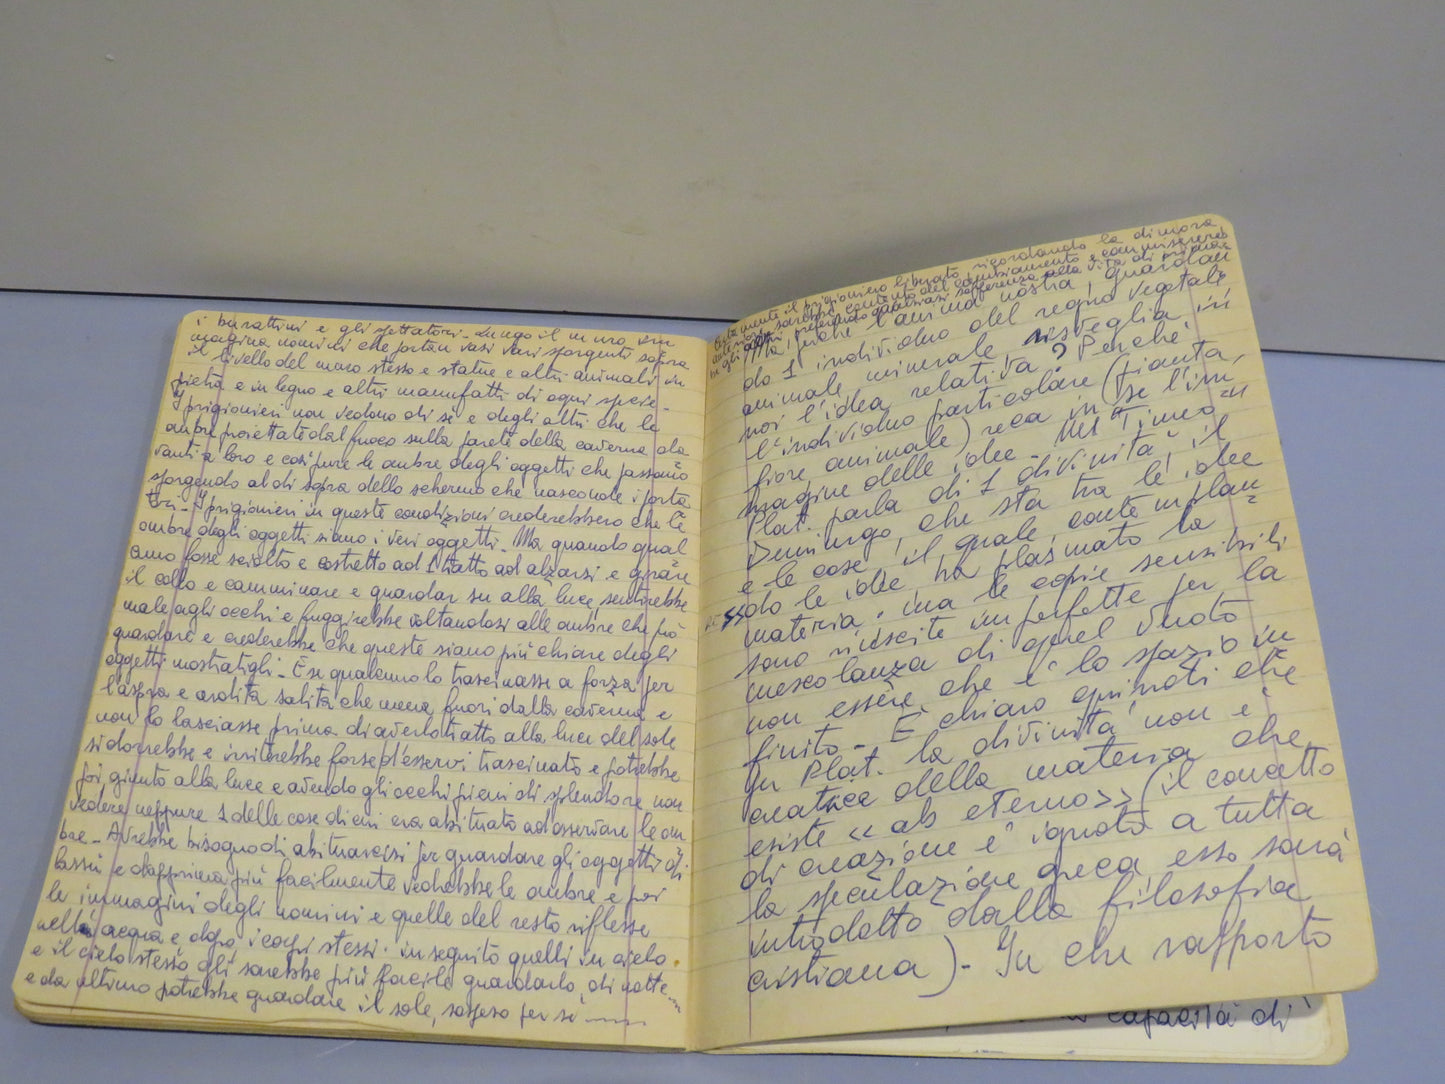 i burattini e gli spettatori - Lungo il muro im
magina uomini che portan vasi vari sporgenti sopra
il livello del muro stesso e statue e altri animali in
pietra e in legno e altri manufatti di ogni specie -
I prigionieri non vedono di sé e degli altri che le
ombre proiettate dal fuoco sulla parete della caverna da
vanti a loro e così pure le ombre degli oggetti che passano
sporgendo al di sopra dello schermo che nasconde i porta
tori - I prigionieri in queste condizioni crederebbero che le
ombre degli oggetti siano i veri oggetti - Ma quando qual
cuno fosse sciolto e costretto ad 1 tratto ad alzarsi e girare
il collo e camminare e guardar su alla luce, sentirebbe
male agli occhi e fuggirebbe voltandosi alle ombre che può
guardare e crederebbe che queste siano più chiare degli
oggetti mostratigli - E se qualcuno lo trascinasse a forza per
l'aspra e ardita salita che mena fuori dalla caverna e
non lo lasciasse prima di averlo tratto alla luce del sole
si dorrebbe e irriterebbe forse d'esservi trascinato e potrebbe
poi, giunto alla luce e avendo gli occhi pieni di splendore non
vedere neppure 1 delle cose di cui era abituato ad osservare le om
bre - Avrebbe bisogno di abituarcisi per guardare gli oggetti di
lassù e dapprima più facilmente vedrebbe le ombre e poi
le immagini degli uomini e quelle del resto riflesse
nell'acqua e dopo i corpi stessi. in seguito quelli in cielo
e il cielo stesso gli sarebbe più facile guardarlo, di notte
e da ultimo potrebbe guardare il sole, sospeso per sé
mente il prigioniero liberato ricordando la dimora
anteriore sarebbe contento del cambiamento e commisererebbe
gli altri preferendo qualsiasi sofferenza alla vita di prima
Ma, perché l'anima nostra, guardan
do 1 individuo del regno vegetale
animale minerale, risveglia in
noi l'idea relativa? Perché
l'individuo particolare (pianta,
fiore animale) reca in sé l'im
magine delle idee - Nel "Timeo"
Plat. parla di 1 divinità, il
Demiurgo, che sta tra le idee
e le cose il quale, contemplan
do le idee ha plasmato la
materia. ma le copie sensibili
sono riuscite imperfette per la
mescolanza di quel vuoto
non essere che è lo spazio in
finito - È chiaro quindi che
in Plat. la divinità non è
creatrice della materia che
esiste «ab eterno» (il concetto
di creazione è ignoto a tutta
la speculazione greca, esso sarà
introdotto dalla filosofia
cristiana) - In che rapporto
capacità di